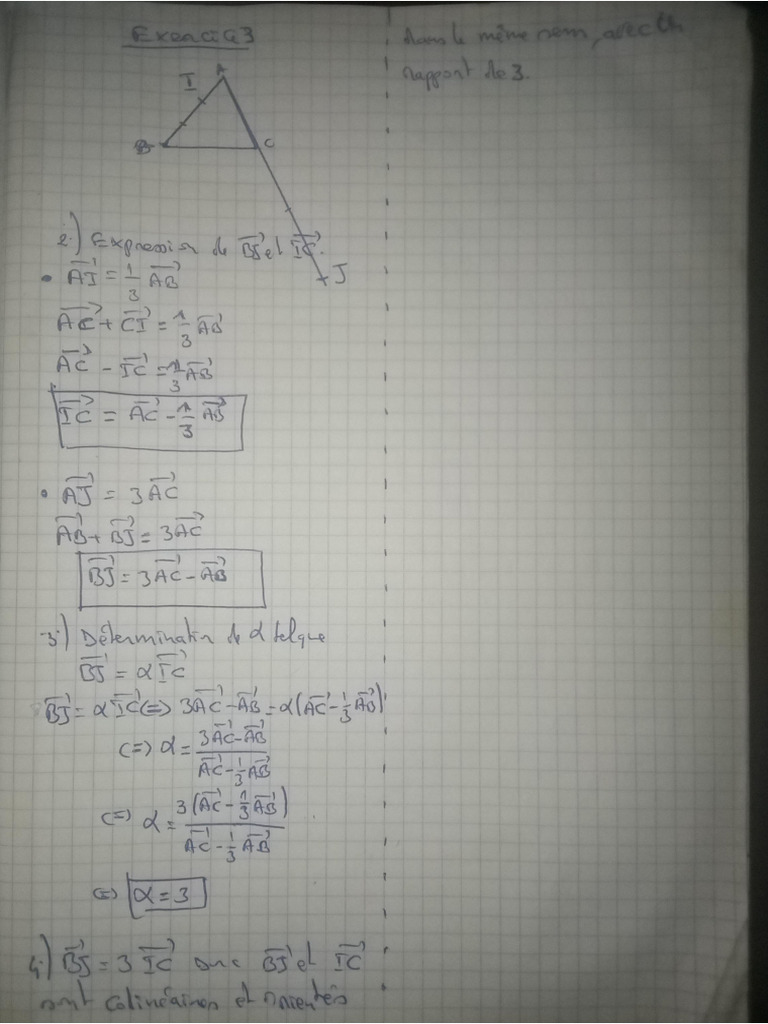 Exercice 3
A
I
B
C
J
2.) Expression de BJ⃗ et IC⃗.
• AI⃗ = 1/3 AB⃗
AC⃗ + CI⃗ = 1/3 AB⃗
AC⃗ - IC⃗ = 1/3 AB⃗
IC⃗ = AC⃗ - 1/3 AB⃗
• AJ⃗ = 3AC⃗
AB⃗ + BJ⃗ = 3AC⃗
BJ⃗ = 3AC⃗ - AB⃗
3.) Détermination de α telque
BJ⃗ = αIC⃗
BJ⃗ = αIC⃗ (=) 3AC⃗ - AB⃗ = α(AC⃗ - 1/3 AB⃗)
(=) α = (3AC⃗ - AB⃗)/(AC⃗ - 1/3 AB⃗)
(=) α = 3(AC⃗ - 1/3 AB⃗)/(AC⃗ - 1/3 AB⃗)
(=) α = 3
4.) BJ⃗ = 3 IC⃗ donc BJ⃗ et IC⃗
sont colinéaires et orientés
dans le même sens, avec Un
rapport de 3.